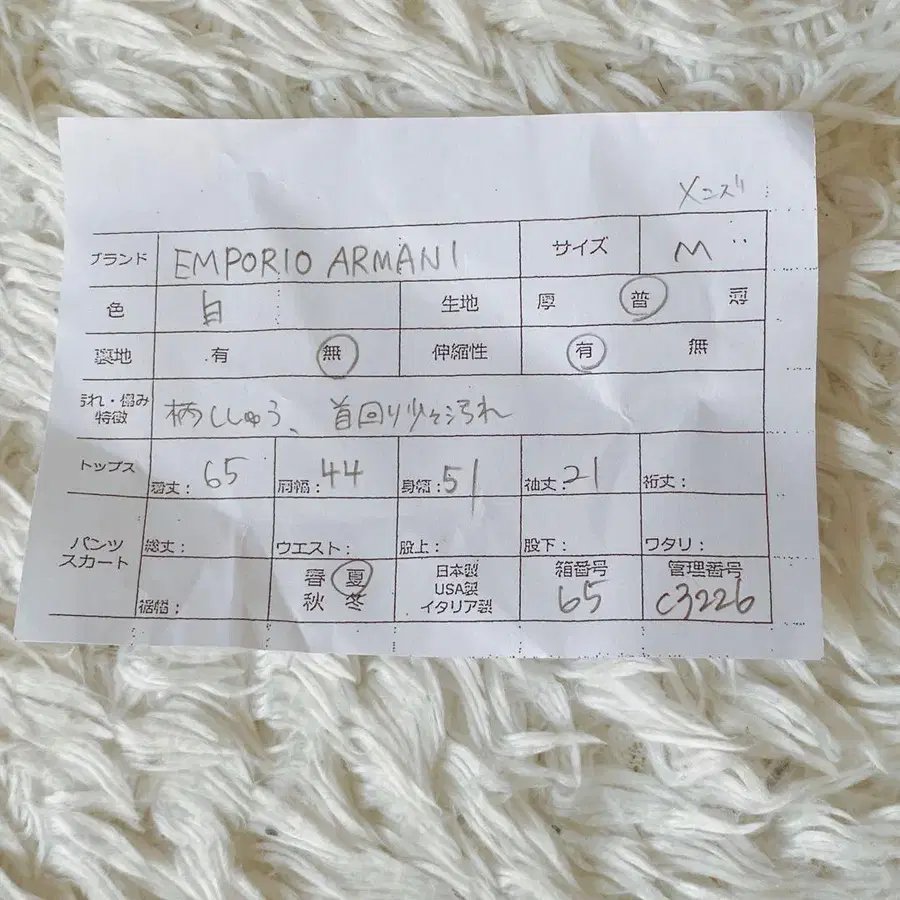 メンズ
ブランド EMPORIO ARMANI サイズ M
色 白 生地 厚 普 薄
裏地 有 無 伸縮性 有 無
汚れ・傷み 特徴 柄ししゅう、首回り少々汚れ
トップス 着丈: 65 肩幅: 44 身幅: 51 袖丈: 21 裄丈:
パンツ スカート 総丈: ウエスト: 股上: 股下: ワタリ:
裾幅: 春 夏 秋 冬 日本製 USA製 イタリア製 箱番号 65 管理番号 C3226